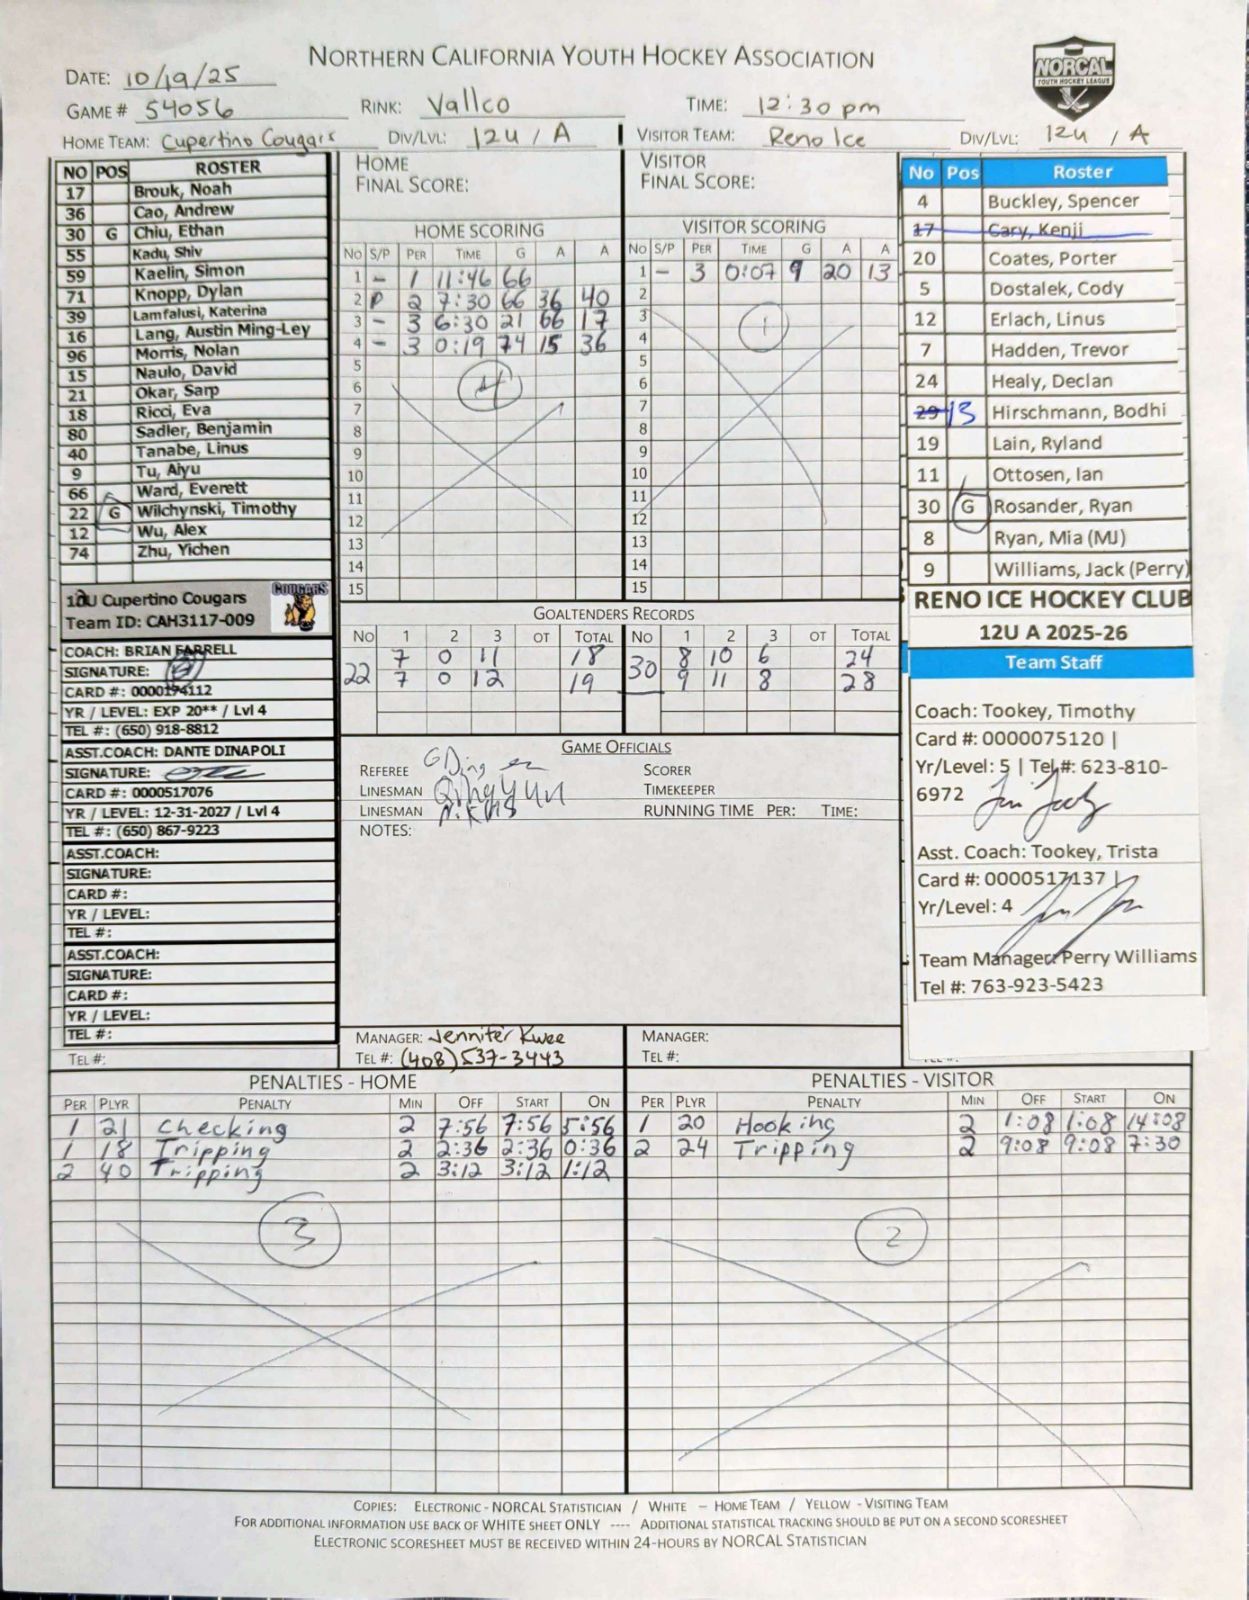 NORTHERN CALIFORNIA YOUTH HOCKEY ASSOCIATION
NORCAL
YOUTH HOCKEY LEAGUE
DATE: 10/19/25
GAME # 54056 RINK: Vallco TIME: 12:30 pm
HOME TEAM: Cupertino Cougars DIV/LVL: 12U / A VISITOR TEAM: Reno Ice DIV/LVL: 12U / A
NO POS ROSTER
17 Brouk, Noah
36 Cao, Andrew
30 G Chiu, Ethan
55 Kadu, Shiv
59 Kaelin, Simon
71 Knopp, Dylan
39 Lamfalusi, Katerina
16 Lang, Austin Ming-Ley
96 Morris, Nolan
15 Naulo, David
21 Okar, Sarp
18 Ricci, Eva
80 Sadler, Benjamin
40 Tanabe, Linus
9 Tu, Aiyu
66 Ward, Everett
22 G Wilchynski, Timothy
12 Wu, Alex
74 Zhu, Yichen
12U Cupertino Cougars
Team ID: CAH3117-009
COUGARS
COACH: BRIAN FARRELL
SIGNATURE:
CARD #: 0000194112
YR / LEVEL: EXP 20** / Lvl 4
TEL #: (650) 918-8812
ASST.COACH: DANTE DINAPOLI
SIGNATURE:
CARD #: 0000517076
YR / LEVEL: 12-31-2027 / Lvl 4
TEL #: (650) 867-9223
ASST.COACH:
SIGNATURE:
CARD #:
YR / LEVEL:
TEL #:
ASST.COACH:
SIGNATURE:
CARD #:
YR / LEVEL:
TEL #:
TEL #:
HOME
FINAL SCORE:
HOME SCORING
NO S/P PER TIME G A A
1 – 1 11:46 66
2 P 2 7:30 66 36 40
3 – 3 6:30 21 66 17
4 – 3 0:19 74 15 36
5
6
7
8
9
10
11
12
13
14
15
4
VISITOR
FINAL SCORE:
VISITOR SCORING
NO S/P PER TIME G A A
1 – 3 0:07 9 20 13
2
3
4
5
6
7
8
9
10
11
12
13
14
15
1
GOALTENDERS RECORDS
NO 1 2 3 OT TOTAL NO 1 2 3 OT TOTAL
22 7 0 11 18 30 8 10 6 24
7 0 12 19 9 11 8 28
GAME OFFICIALS
REFEREE SCORER
LINESMAN TIMEKEEPER
LINESMAN RUNNING TIME PER: TIME:
NOTES:
MANAGER: Jennifer Kwee MANAGER:
TEL #: (408) 537-3443 TEL #:
No Pos Roster
4 Buckley, Spencer
17 Cary, Kenji
20 Coates, Porter
5 Dostalek, Cody
12 Erlach, Linus
7 Hadden, Trevor
24 Healy, Declan
29 13 Hirschmann, Bodhi
19 Lain, Ryland
11 Ottosen, Ian
30 G Rosander, Ryan
8 Ryan, Mia (MJ)
9 Williams, Jack (Perry)
RENO ICE HOCKEY CLUB
12U A 2025-26
Team Staff
Coach: Tookey, Timothy
Card #: 0000075120 |
Yr/Level: 5 | Tel #: 623-810-
6972
Asst. Coach: Tookey, Trista
Card #: 0000517137 |
Yr/Level: 4
Team Manager: Perry Williams
Tel #: 763-923-5423
PENALTIES - HOME
PER PLYR PENALTY MIN OFF START ON
1 21 Checking 2 7:56 7:56 5:56
1 18 Tripping 2 2:36 2:36 0:36
2 40 Tripping 2 3:12 3:12 1:12
3
PENALTIES - VISITOR
PER PLYR PENALTY MIN OFF START ON
1 20 Hooking 2 1:08 1:08 14:08
2 24 Tripping 2 9:08 9:08 7:30
2
COPIES: ELECTRONIC - NORCAL STATISTICIAN / WHITE – HOME TEAM / YELLOW - VISITING TEAM
FOR ADDITIONAL INFORMATION USE BACK OF WHITE SHEET ONLY ---- ADDITIONAL STATISTICAL TRACKING SHOULD BE PUT ON A SECOND SCORESHEET
ELECTRONIC SCORESHEET MUST BE RECEIVED WITHIN 24-HOURS BY NORCAL STATISTICIAN